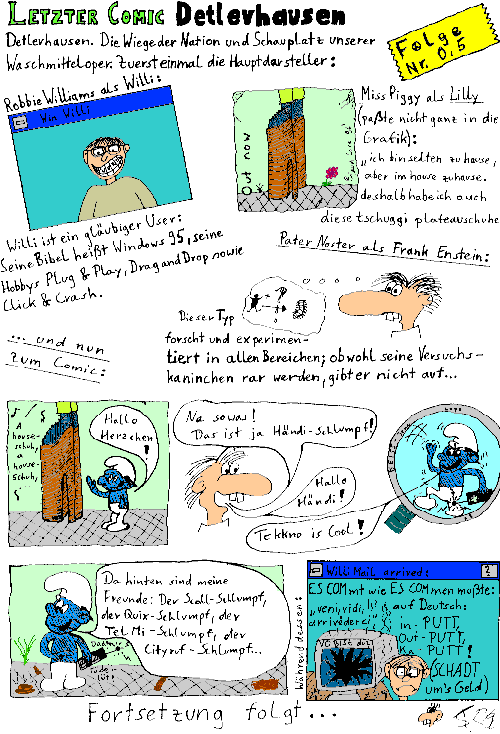 LETZTER COMIC Detlevhausen
Folge
Nr. 0,5
Detlevhausen. Die Wiege der Nation und Schauplatz unserer
Waschmitteloper. Zuersteinmal die Hauptdarsteller:
Robbie Williams als Willi:
Win Willi
Out now
Miss Piggy als Lilly
(paßte nicht ganz in die
Grafik):
"ich bin selten zu hause,
aber im house zuhause.
deshalb habe ich auch
diese tschuggi plateauschuhe
Willi ist ein gläubiger User:
Seine Bibel heißt Windows 95, seine
Hobbys Plug & Play, Drag and Drop sowie
Click & Crash.
Pater Noster als Frank Enstein:
Dieser Typ
forscht und experimen-
tiert in allen Bereichen; obwohl seine Versuchs-
kaninchen rar werden, gibt er nicht auf...
... und nun
zum Comic:
A
house-
schuh,
a
house-
schuh,
Hallo
Herzchen!
Na sowas!
Das ist ja Händi-Schlumpf!
Hallo
Händi!
Tekkno is Cool!
Da hinten sind meine
Freunde: Der Scall-Schlumpf,
der Quix-Schlumpf, der
TelMi-Schlumpf, der
Cityruf-Schlumpf...
während dessen:
Willi Mail arrived:
?
ES COMmt wie ES COMmen mußte:
"veni, vidi,
auf Deutsch:
arrivederci"
in-PUTT,
Out-PUTT,
Ka-PUTT!
(SCHADT
um's Geld)
Fortsetzung folgt...